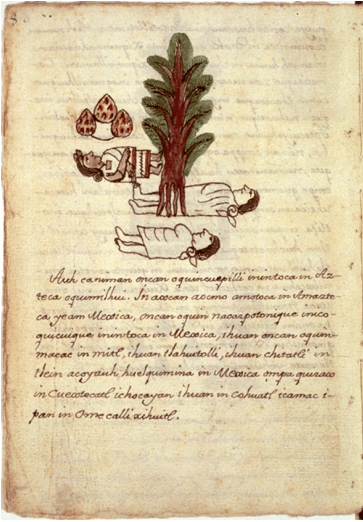 3
Auh ca niman oncan oquincuepilli inintoca in Az-
teca oquimilhui. In axcan aocmo amotoca in Amazte-
ca yeam Mexica, oncan oquin nacazpotonique inico-
quicuique inintoca in Mexica, ihuan oncan oquin-
macac in mitl, ihuan tlahuitolli, ihuan chitatli in
tlein acoyauh huelquimina in Mexica ompa quizaco
in Cuextecatl ichocayan ihuan in Cohuatl icamac i-
pan in Ome calli xihuitl.